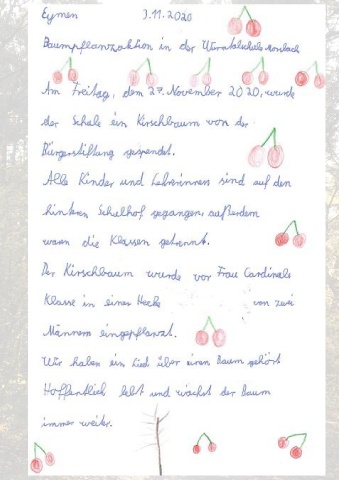 Eymen 3.11.2020
Baumpflanzaktion in der Wurmtalschule
Am Freitag, dem 27. November 2020, wurde
der Schule ein Kirschbaum von der
Bürgerstiftung gespendet.
Alle Kinder und Lehrerinnen sind auf den
hintern Schulhof gegangen, außerdem
waren die Klassen getrennt.
Der Kirschbaum wurde vor Frau Cardinals
Klasse in eines Hecke von zwei
Männern eingepflanzt.
Wir haben ein Lied über einen Baum gehört
Hoffentlich lebt und wächst der Baum
immer weiter.